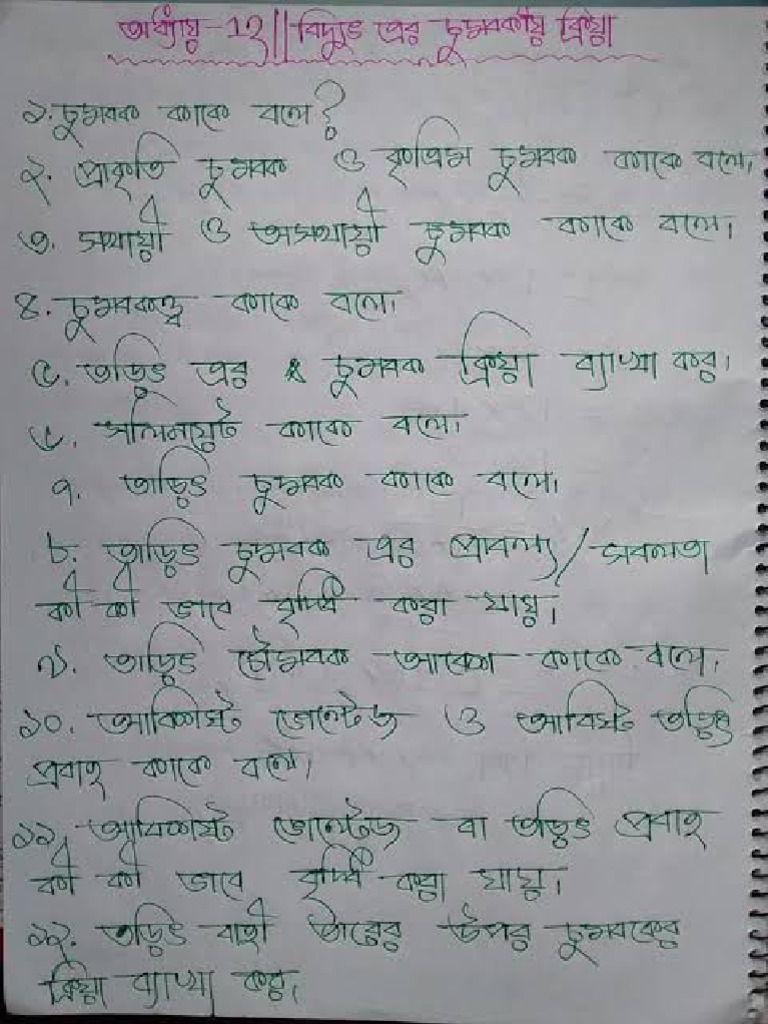 অধ্যায়-12 || বিদ্যুৎ এর চুম্বকীয় ক্রিয়া
১. চুম্বক কাকে বলে?
২. প্রাকৃতি চুম্বক ও কৃত্রিম চুম্বক কাকে বলে।
৩. স্থায়ী ও অস্থায়ী চুম্বক কাকে বলে।
৪. চুম্বকত্ব কাকে বলে।
৫. তড়িৎ এর চুম্বক ক্রিয়া ব্যাখ্যা কর।
৬. সলিনয়েট কাকে বলে।
৭. তাড়িৎ চুম্বক কাকে বলে।
৮. তাড়িৎ চুম্বক এর প্রাবল্য/সবলতা
কী কী ভাবে বৃদ্ধি করা যায়।
৯. তাড়িৎ চৌম্বক আবেশ কাকে বলে।
১০. আবিশষ্ট ভোল্টেজ ও আবিষ্ট তড়িৎ
প্রবাহ কাকে বলে।
১১. আবিশষ্ট ভোল্টেজ বা তড়িৎ প্রবাহ
কী কী ভাবে বৃদ্ধি করা যায়।
১২. তড়িৎ বাহী তারের উপর চুম্বকের
ক্রিয়া ব্যাখ্যা কর।